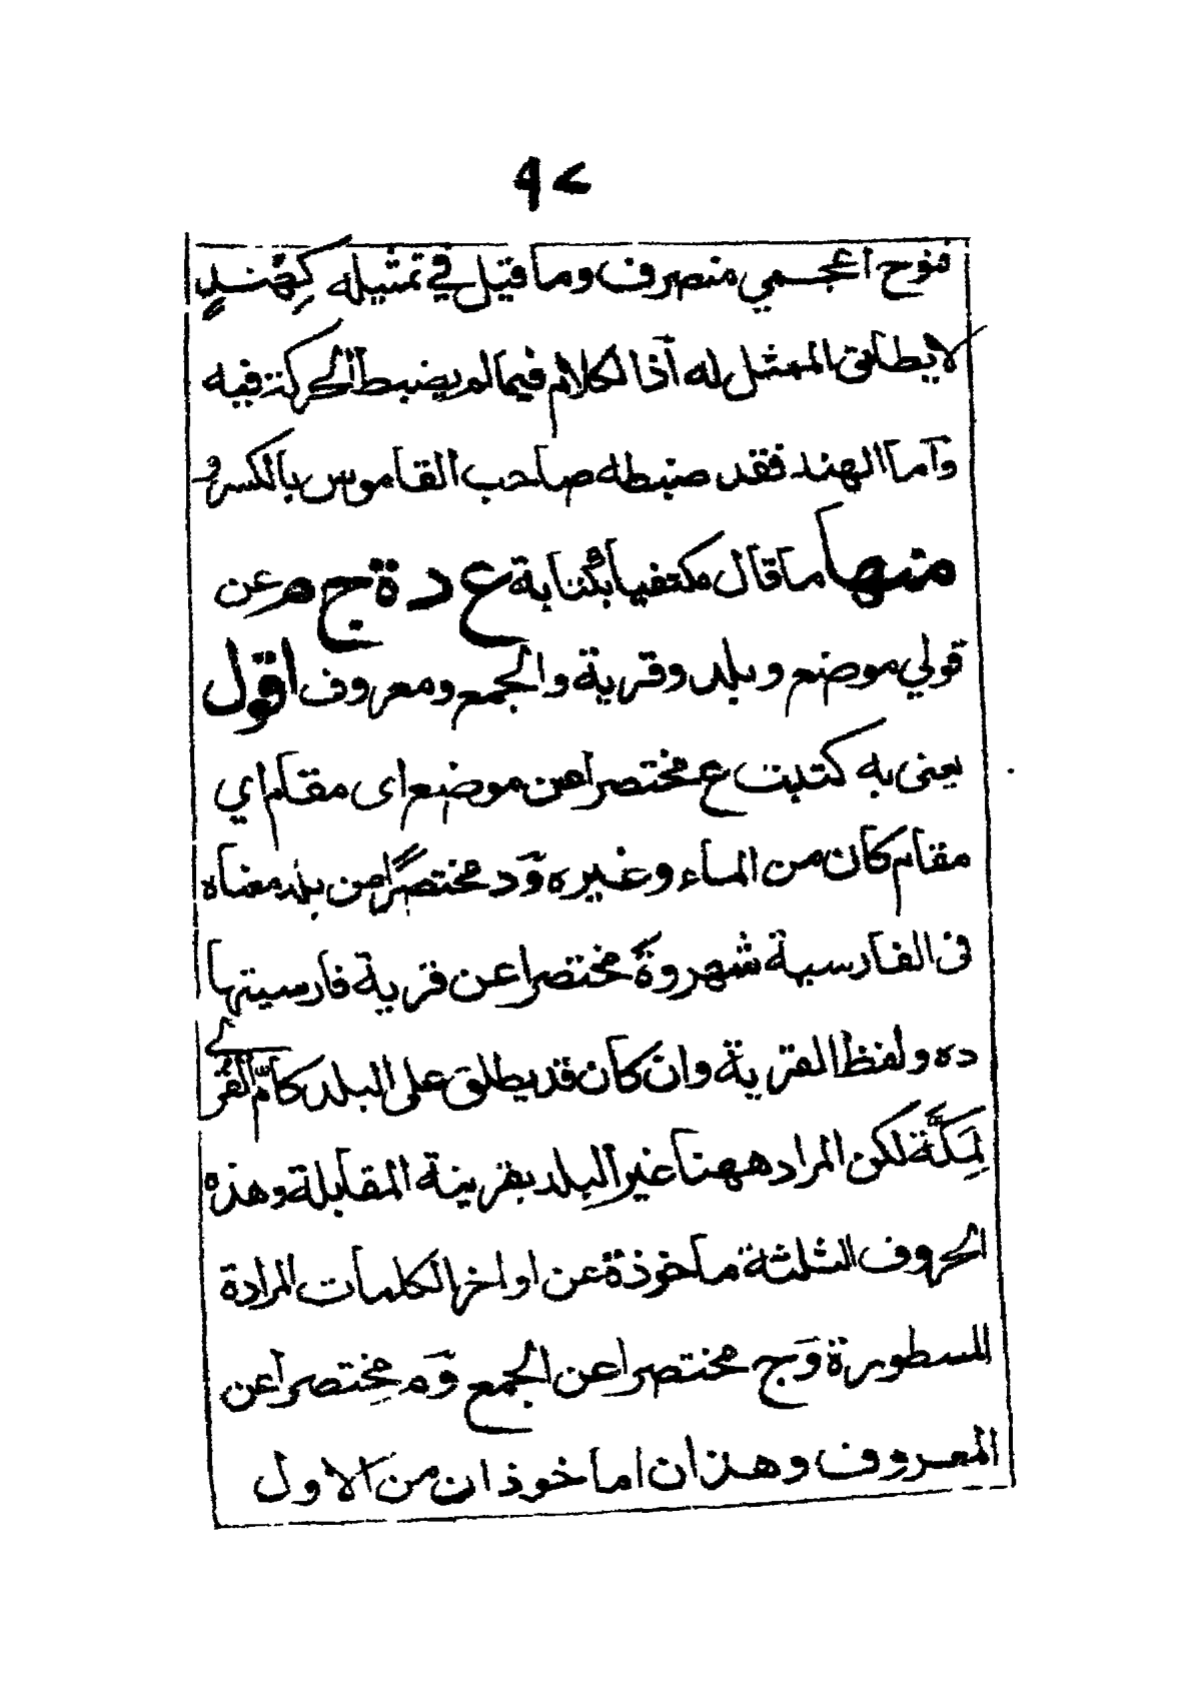 فنوح اعجمي منصرف وما قيل في تمثيله كهندٍ
لا يطابق الممثل له آذا لكلام فيما لم يضبط الحركة فيه
وآما الهند فقد ضبطه صاحب القاموس بالكسر و
منها ما قال مكتفيا بكتابة ع د ة ج م عن
قولي موضع وبلد وقرية والجمع ومعروف اقول
يعنى به كتبت ع مختصرا عن موضع اى مقام اي
مقام كان من الماء وغيره وَد مختصرًا عن بلد معناه
فى الفارسية شهر وةً مختصرا عن قرية فارسيتها
ده ولفظ القرية وان كان قد يطلق على البلد كامّ القُرے
لِمَكَّة لكن المراد ههنا غير البلد بقرينة المقابلة وهذه
الحروف الثلثة ماخوذة عن اواخر الكلمات المرادة
المسطورة وَج مختصرا عن الجمع وَم مختصرا عن
المعروف وهذان اماخوذان من الاول